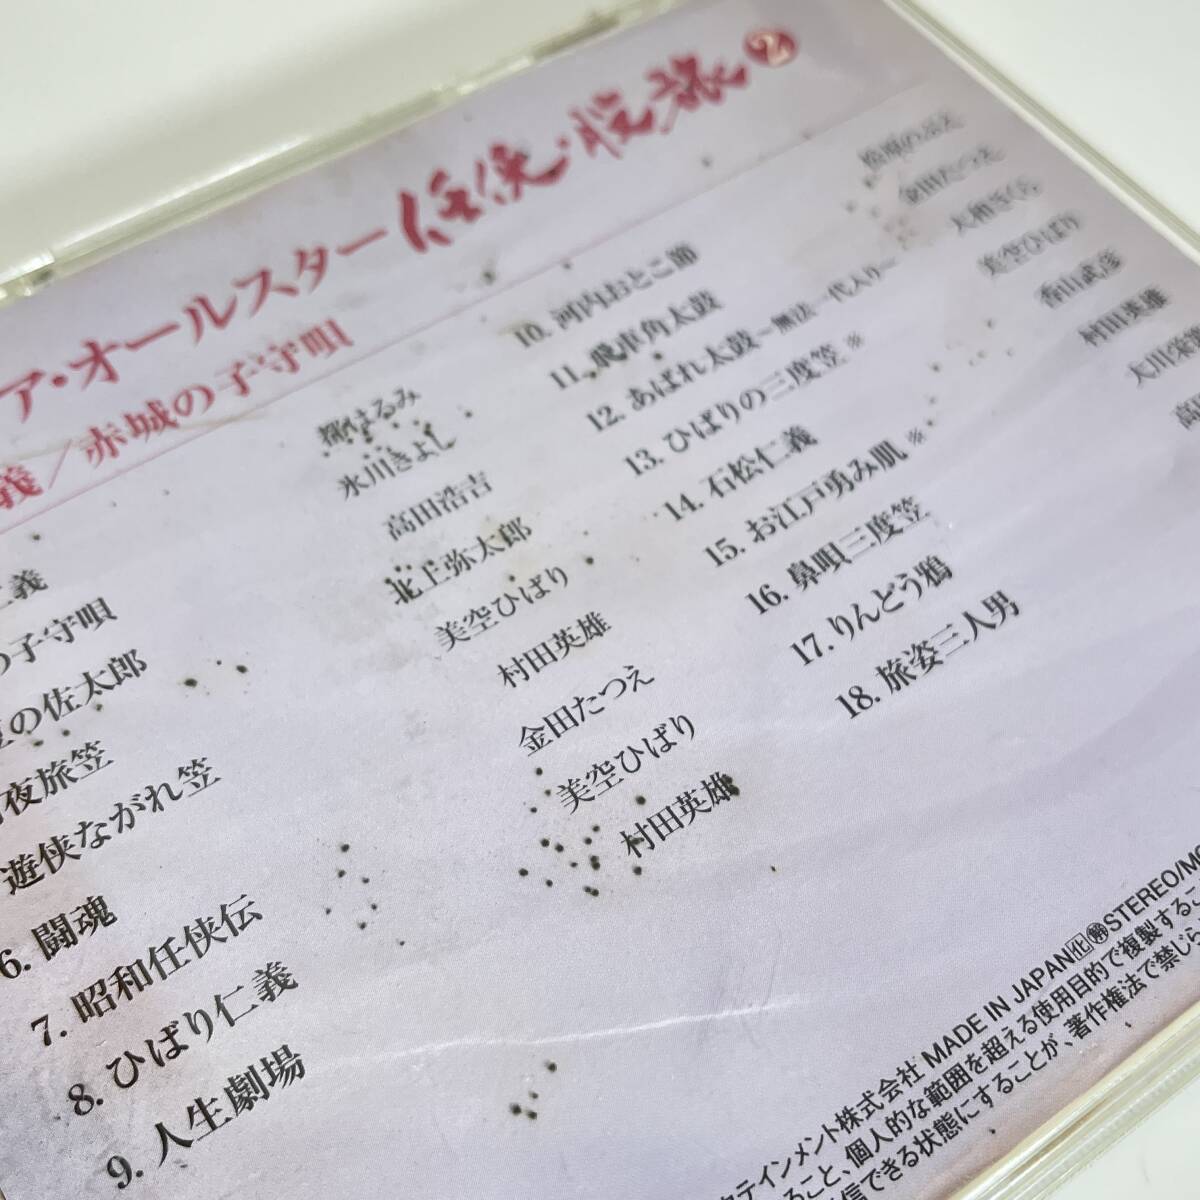 ア・オールスター 任侠・股旅 2
義/赤城の子守唄
仁義 都はるみ
の子守唄 氷川きよし
の佐太郎 高田浩吉
夜旅笠 北上弥太郎
遊侠ながれ笠 美空ひばり
6. 闘魂 村田英雄
7. 昭和任侠伝 金田たつえ
8. ひばり仁義 美空ひばり
9. 人生劇場 村田英雄
10. 河内おとこ節
11. 飛車角太鼓 金田たつえ
12. あばれ太鼓~無法一代入り~ 大和さくら
13. ひばりの三度笠※ 美空ひばり
14. 石松仁義 香山武彦
15. お江戸勇み肌※ 村田英雄
16. 鼻唄三度笠 大川栄
17. りんどう鴉 高
18. 旅姿三人男
テインメント株式会社 MADE IN JAPAN STEREO/MO
ること、個人的な範囲を超える使用目的で複製するこ
信できる状態にすることが、著作権法で禁じら